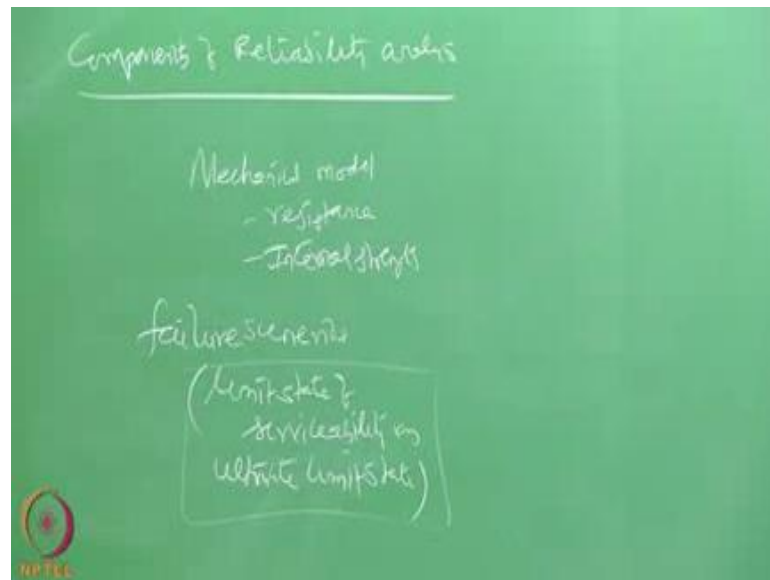 Components of Reliability analysis
Mechanical model
- resistance
- Internal strength
failure scenario
(limit state of
serviceability or
ultimate limit state)
NPTEL